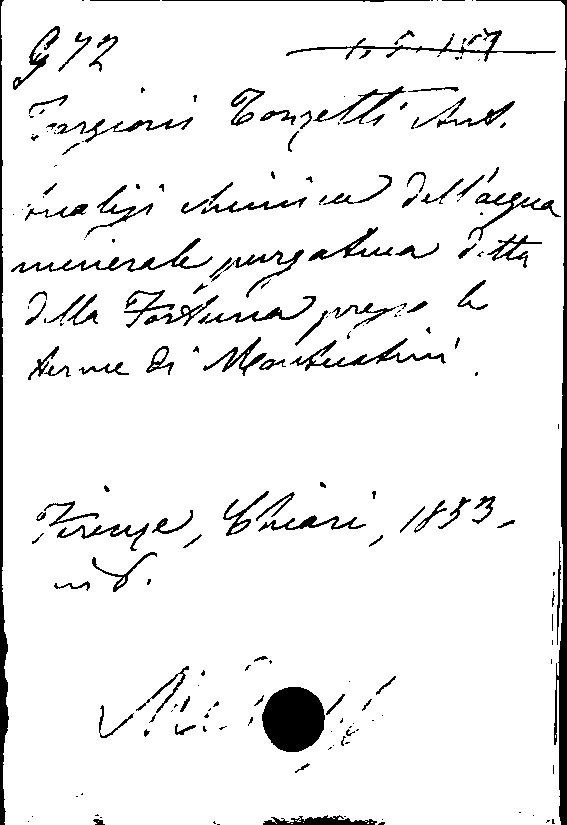 G 72
1. 5. 157
Targioni Tozzetti Ant.
Analisi chimica dell'acqua
minerale purgativa detta
della Fortuna presso le
terme di Montecatini.
Firenze, Chiari, 1853.
in 8.